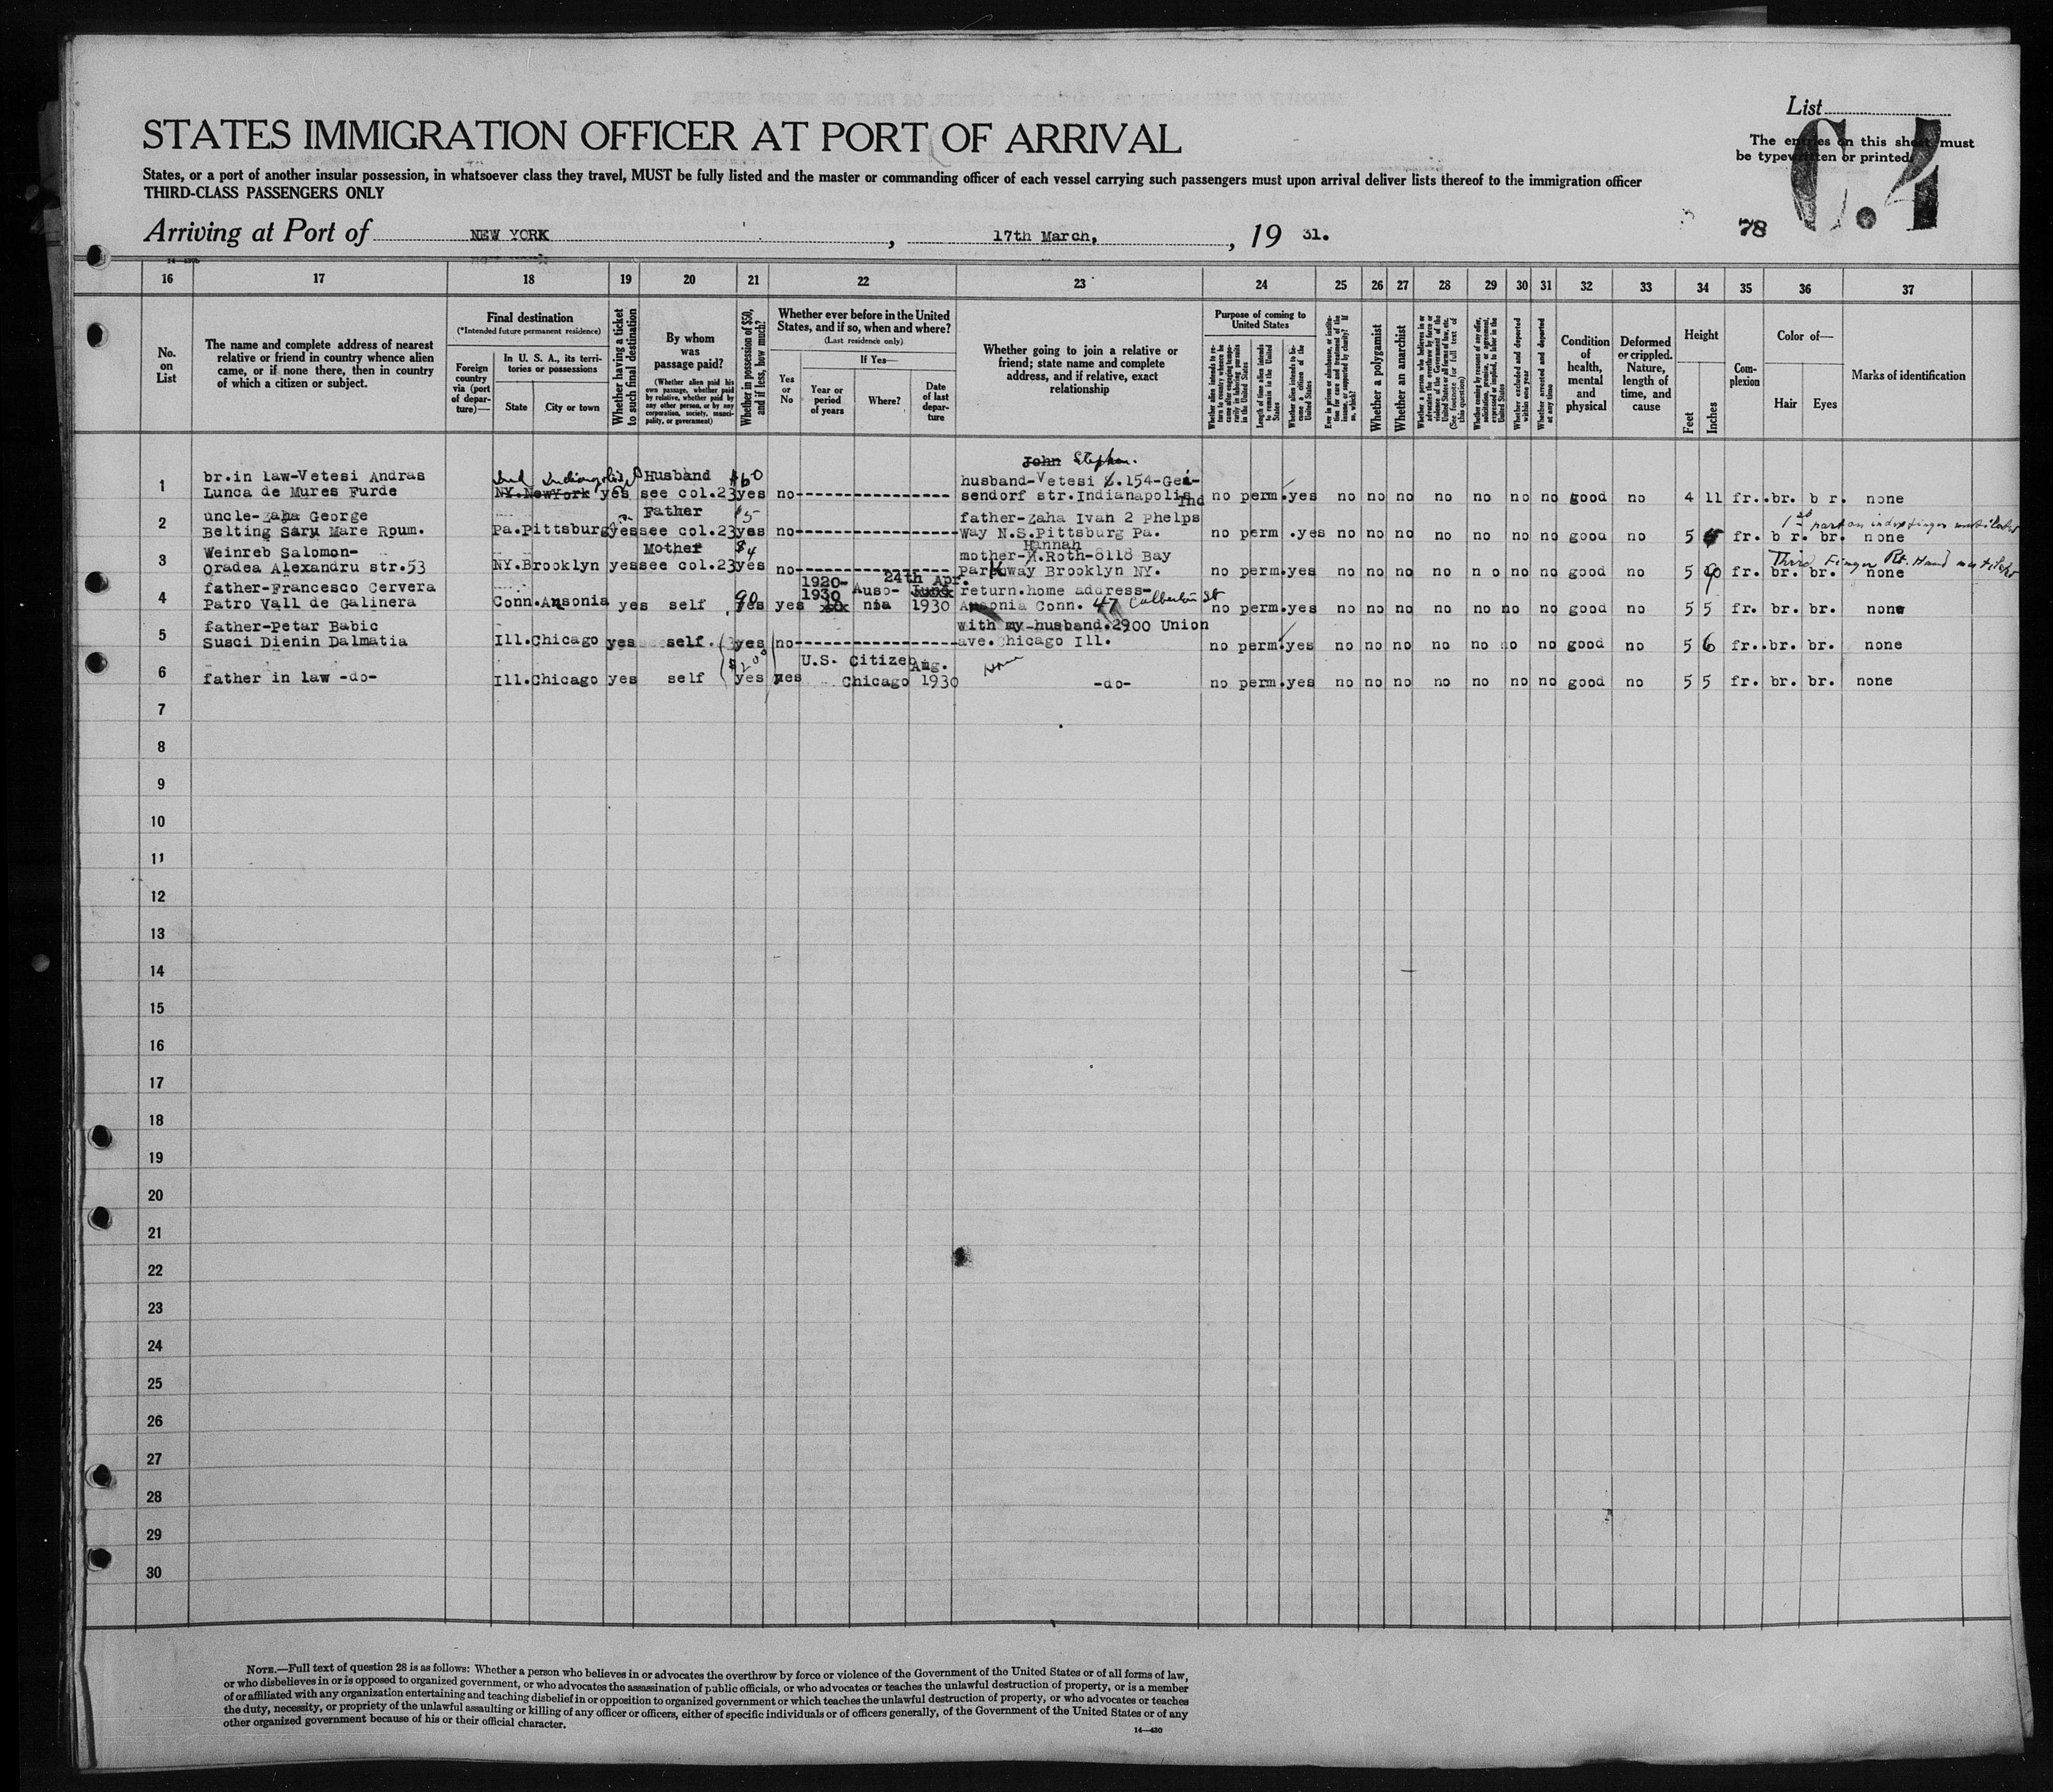 List
STATES IMMIGRATION OFFICER AT PORT OF ARRIVAL
The entries on this sheet must
be typewritten or printed.
C.4
States, or a port of another insular possession, in whatsoever class they travel, MUST be fully listed and the master or commanding officer of each vessel carrying such passengers must upon arrival deliver lists thereof to the immigration officer
THIRD-CLASS PASSENGERS ONLY
Arriving at Port of NEW YORK, 17th March, 19 31.
78
16 17 18 19 20 21 22 23 24 25 26 27 28 29 30 31 32 33 34 35 36 37
No. on List
The name and complete address of nearest relative or friend in country whence alien came, or if none there, then in country of which a citizen or subject.
Final destination
(*Intended future permanent residence)
Foreign country via (port of departure)—
In U. S. A., its territories or possessions
State
City or town
Whether having a ticket to such final destination
By whom was passage paid?
(Whether alien paid his own passage, whether paid by relative, whether paid by any other person, or by any corporation, society, municipality, or government)
Whether in possession of $50, and if less, how much?
Whether ever before in the United States, and if so, when and where?
(Last residence only)
Yes or No
If Yes—
Year or period of years
Where?
Date of last departure
Whether going to join a relative or friend; state name and complete address, and if relative, exact relationship
Purpose of coming to United States
Whether alien intends to return to country whence he came after engaging temporarily in laboring pursuits in the United States
Length of time alien intends to remain in the United States
Whether alien intends to become a citizen of the United States
Ever in prison or almshouse, or institution for care and treatment of the insane, or supported by charity? If so, which?
Whether a polygamist
Whether an anarchist
Whether a person who believes in or advocates the overthrow by force or violence of the Government of the United States or all forms of law, etc. (See footnote for full text of this question)
Whether coming by reasons of any offer, solicitation, promise, or agreement, expressed or implied, to labor in the United States
Whether excluded and deported within one year
Whether arrested and deported at any time
Condition of health, mental and physical
Deformed or crippled. Nature, length of time, and cause
Height
Feet
Inches
Complexion
Color of—
Hair
Eyes
Marks of identification
John Stephen.
1 br.in law-Vetesi Andras Ind Indianapolis Husband $60 husband-Vetesi S.154-Gei-
Lunca de Mures Furde NY.NewYork yes see col.23 yes no sendorf str.Indianapolis Ind no perm.yes no no no no no no no good no 4 11 fr. br. br. none
2 uncle-Zaha George Father $5 father-Zaha Ivan 2 Phelps 1st part on index finger mutilated
Belting Saru Mare Roum. Pa.Pittsburg yes see col.23 yes no Way N.S.Pittsburg Pa. no perm.yes no no no no no no no good no 5 fr. br. br. none
3 Weinreb Salomon- Mother $4 Hannah mother-H.Roth-8118 Bay Third Finger Rt. Hand mutilated
Oradea Alexandru str.53 NY.Brooklyn yes see col.23 yes no Parkway Brooklyn NY. no perm.yes no no no no no no no good no 5 fr. br. br. none
4 father-Francesco Cervera 90 1920-1930 Auso- 24th Apr. return.home address-
Patro Vall de Galinera Conn.Ansonia yes self yes yes nia 1930 Ansonia Conn. 47 Culberton St no perm.yes no no no no no no no good no 5 5 fr. br. br. none
5 father-Petar Babic with my husband.2900 Union
Susci Dienin Dalmatia Ill.Chicago yes self. yes no ave.Chicago Ill. no perm.yes no no no no no no no good no 5 6 fr. br. br. none
6 $200 U.S. Citizen Aug. Home
father in law -do- Ill.Chicago yes self yes yes Chicago 1930 -do- no perm.yes no no no no no no no good no 5 5 fr. br. br. none
7
8
9
10
11
12
13
14
15
16
17
18
19
20
21
22
23
24
25
26
27
28
29
30
NOTE.—Full text of question 28 is as follows: Whether a person who believes in or advocates the overthrow by force or violence of the Government of the United States or of all forms of law,
or who disbelieves in or is opposed to organized government, or who advocates the assassination of public officials, or who advocates or teaches the unlawful destruction of property, or is a member
of or affiliated with any organization entertaining and teaching disbelief in or opposition to organized government or which teaches the unlawful destruction of property, or who advocates or teaches
the duty, necessity, or propriety of the unlawful assaulting or killing of any officer or officers, either of specific individuals or of officers generally, of the Government of the United States or of any
other organized government because of his or their official character.
14—430